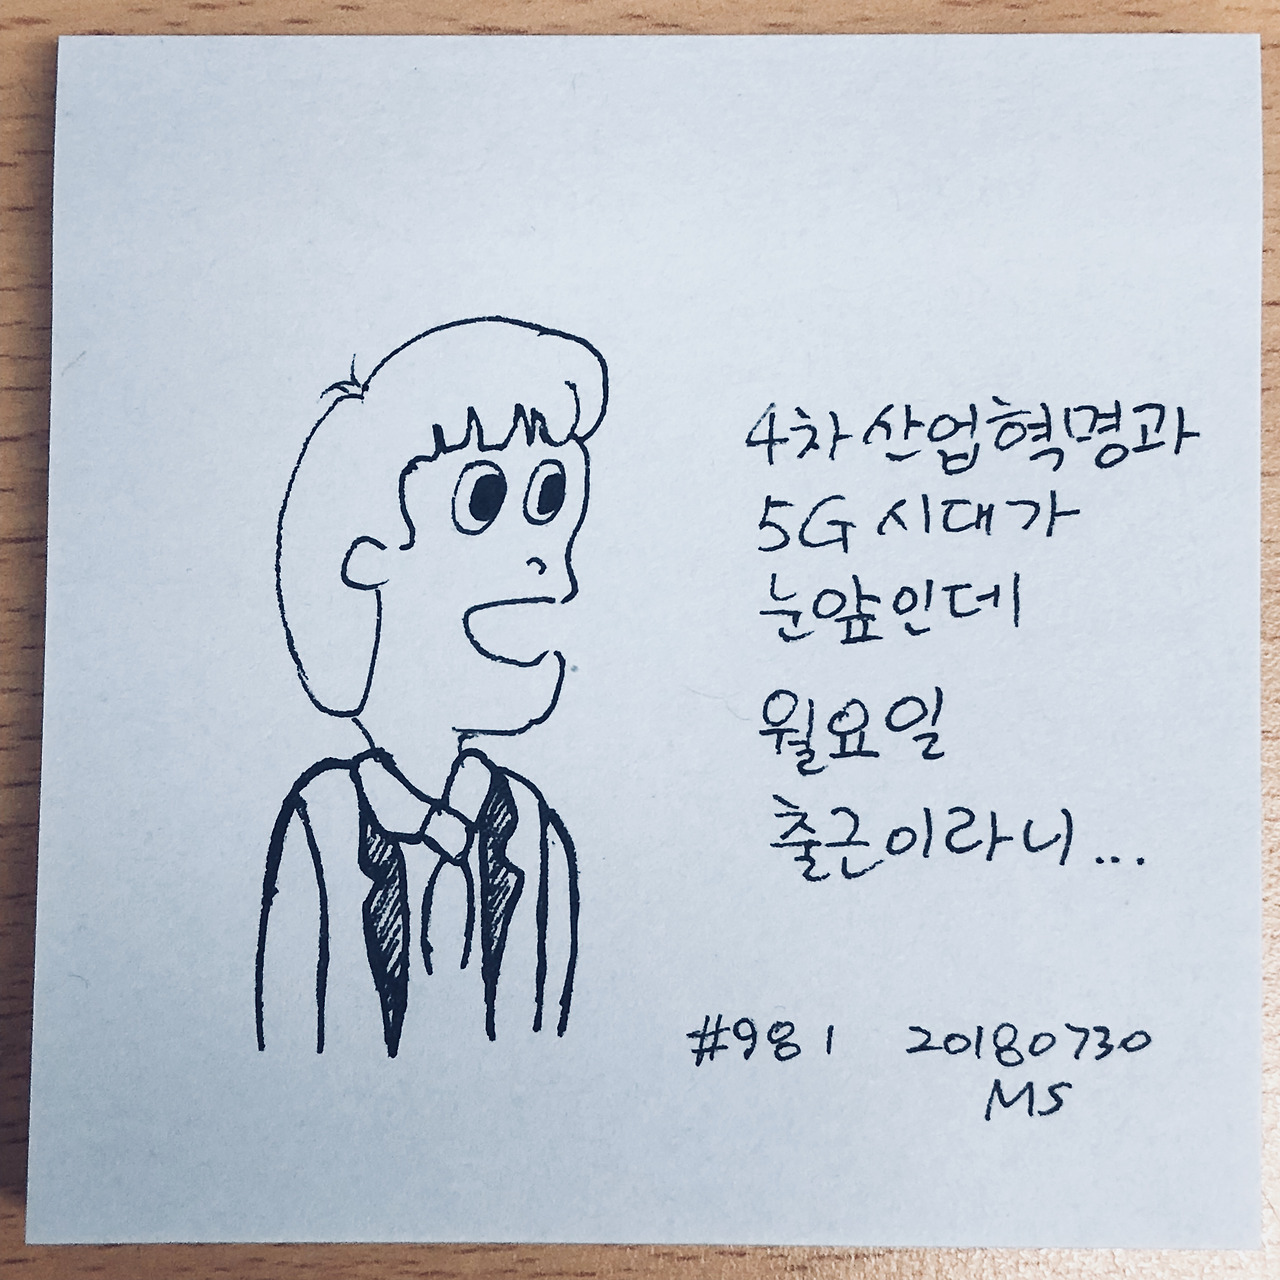 4차산업혁명과
5G 시대가
눈앞인데
월요일
출근이라니...
#981 20180730
MS